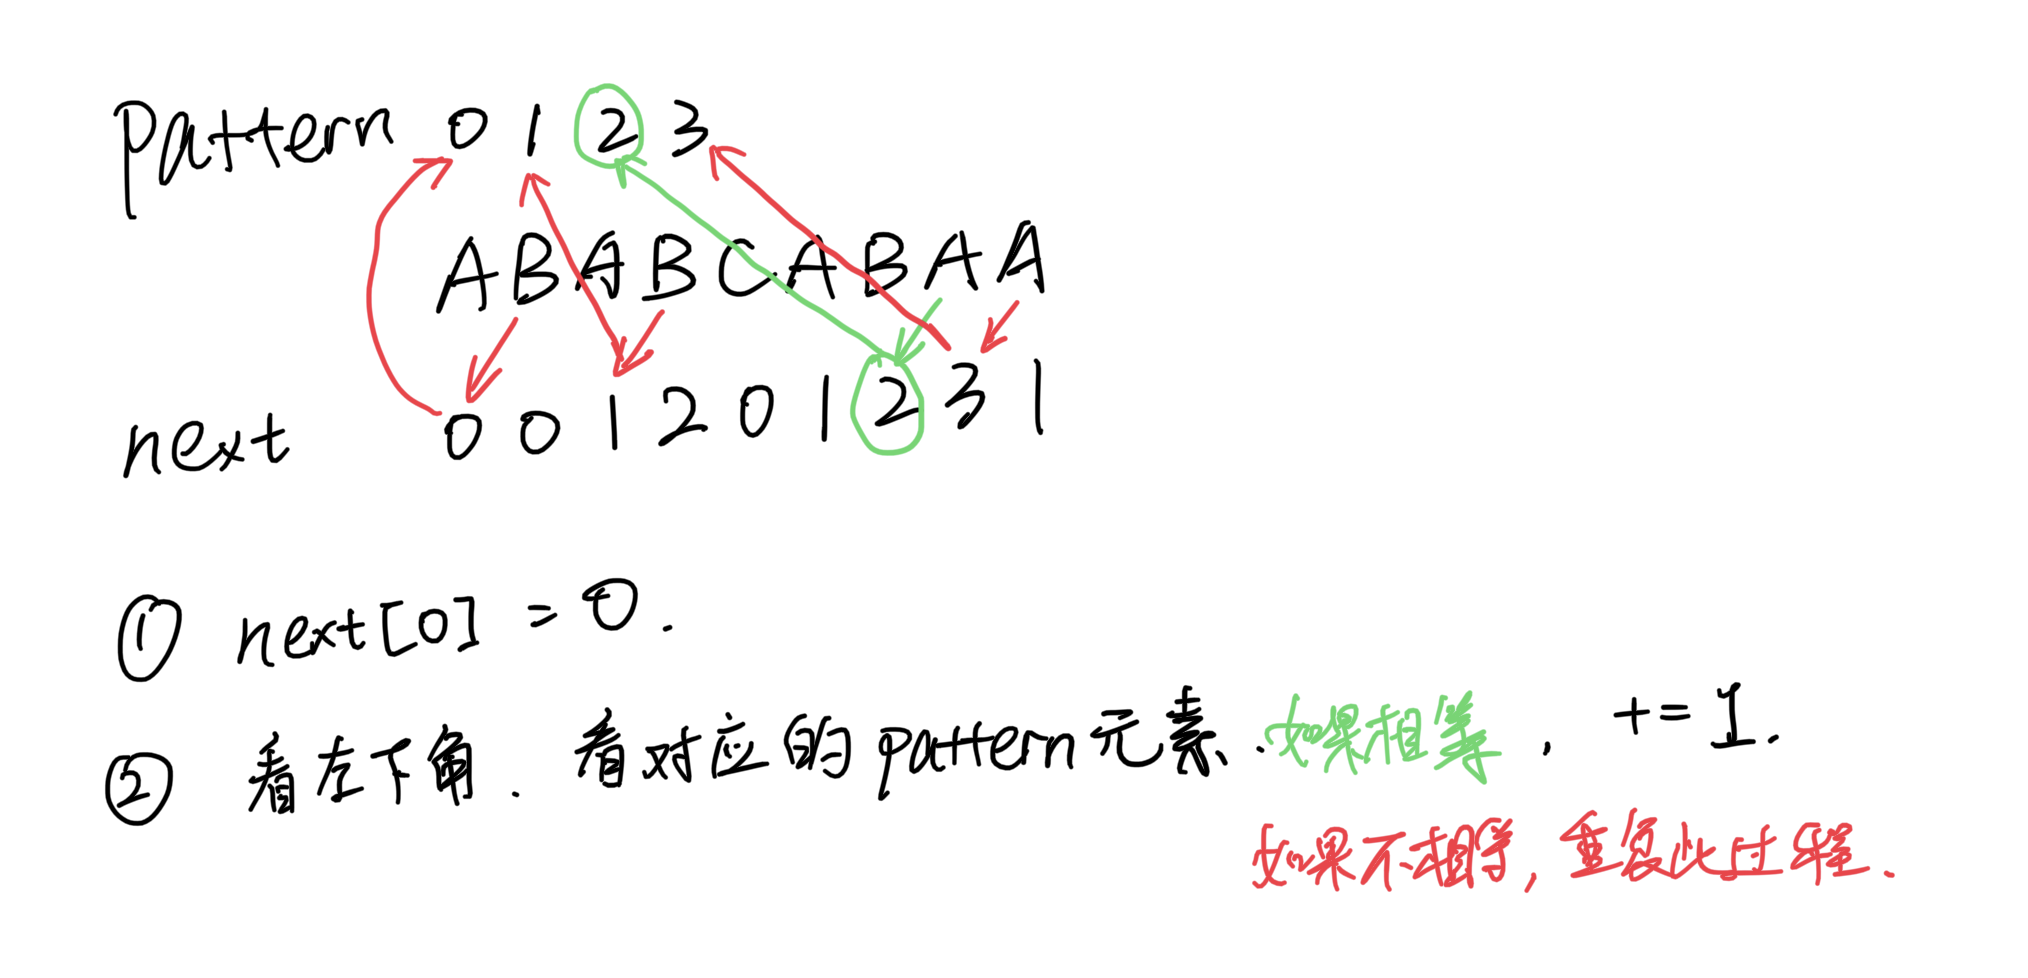 Pattern 0 1 2 3
A B A B C A B A A
next 0 0 1 2 0 1 2 3 1
① next[0] = 0.
② 看左下角. 看对应的pattern元素. 如果相等, += 1.
如果不相等, 重复此过程.